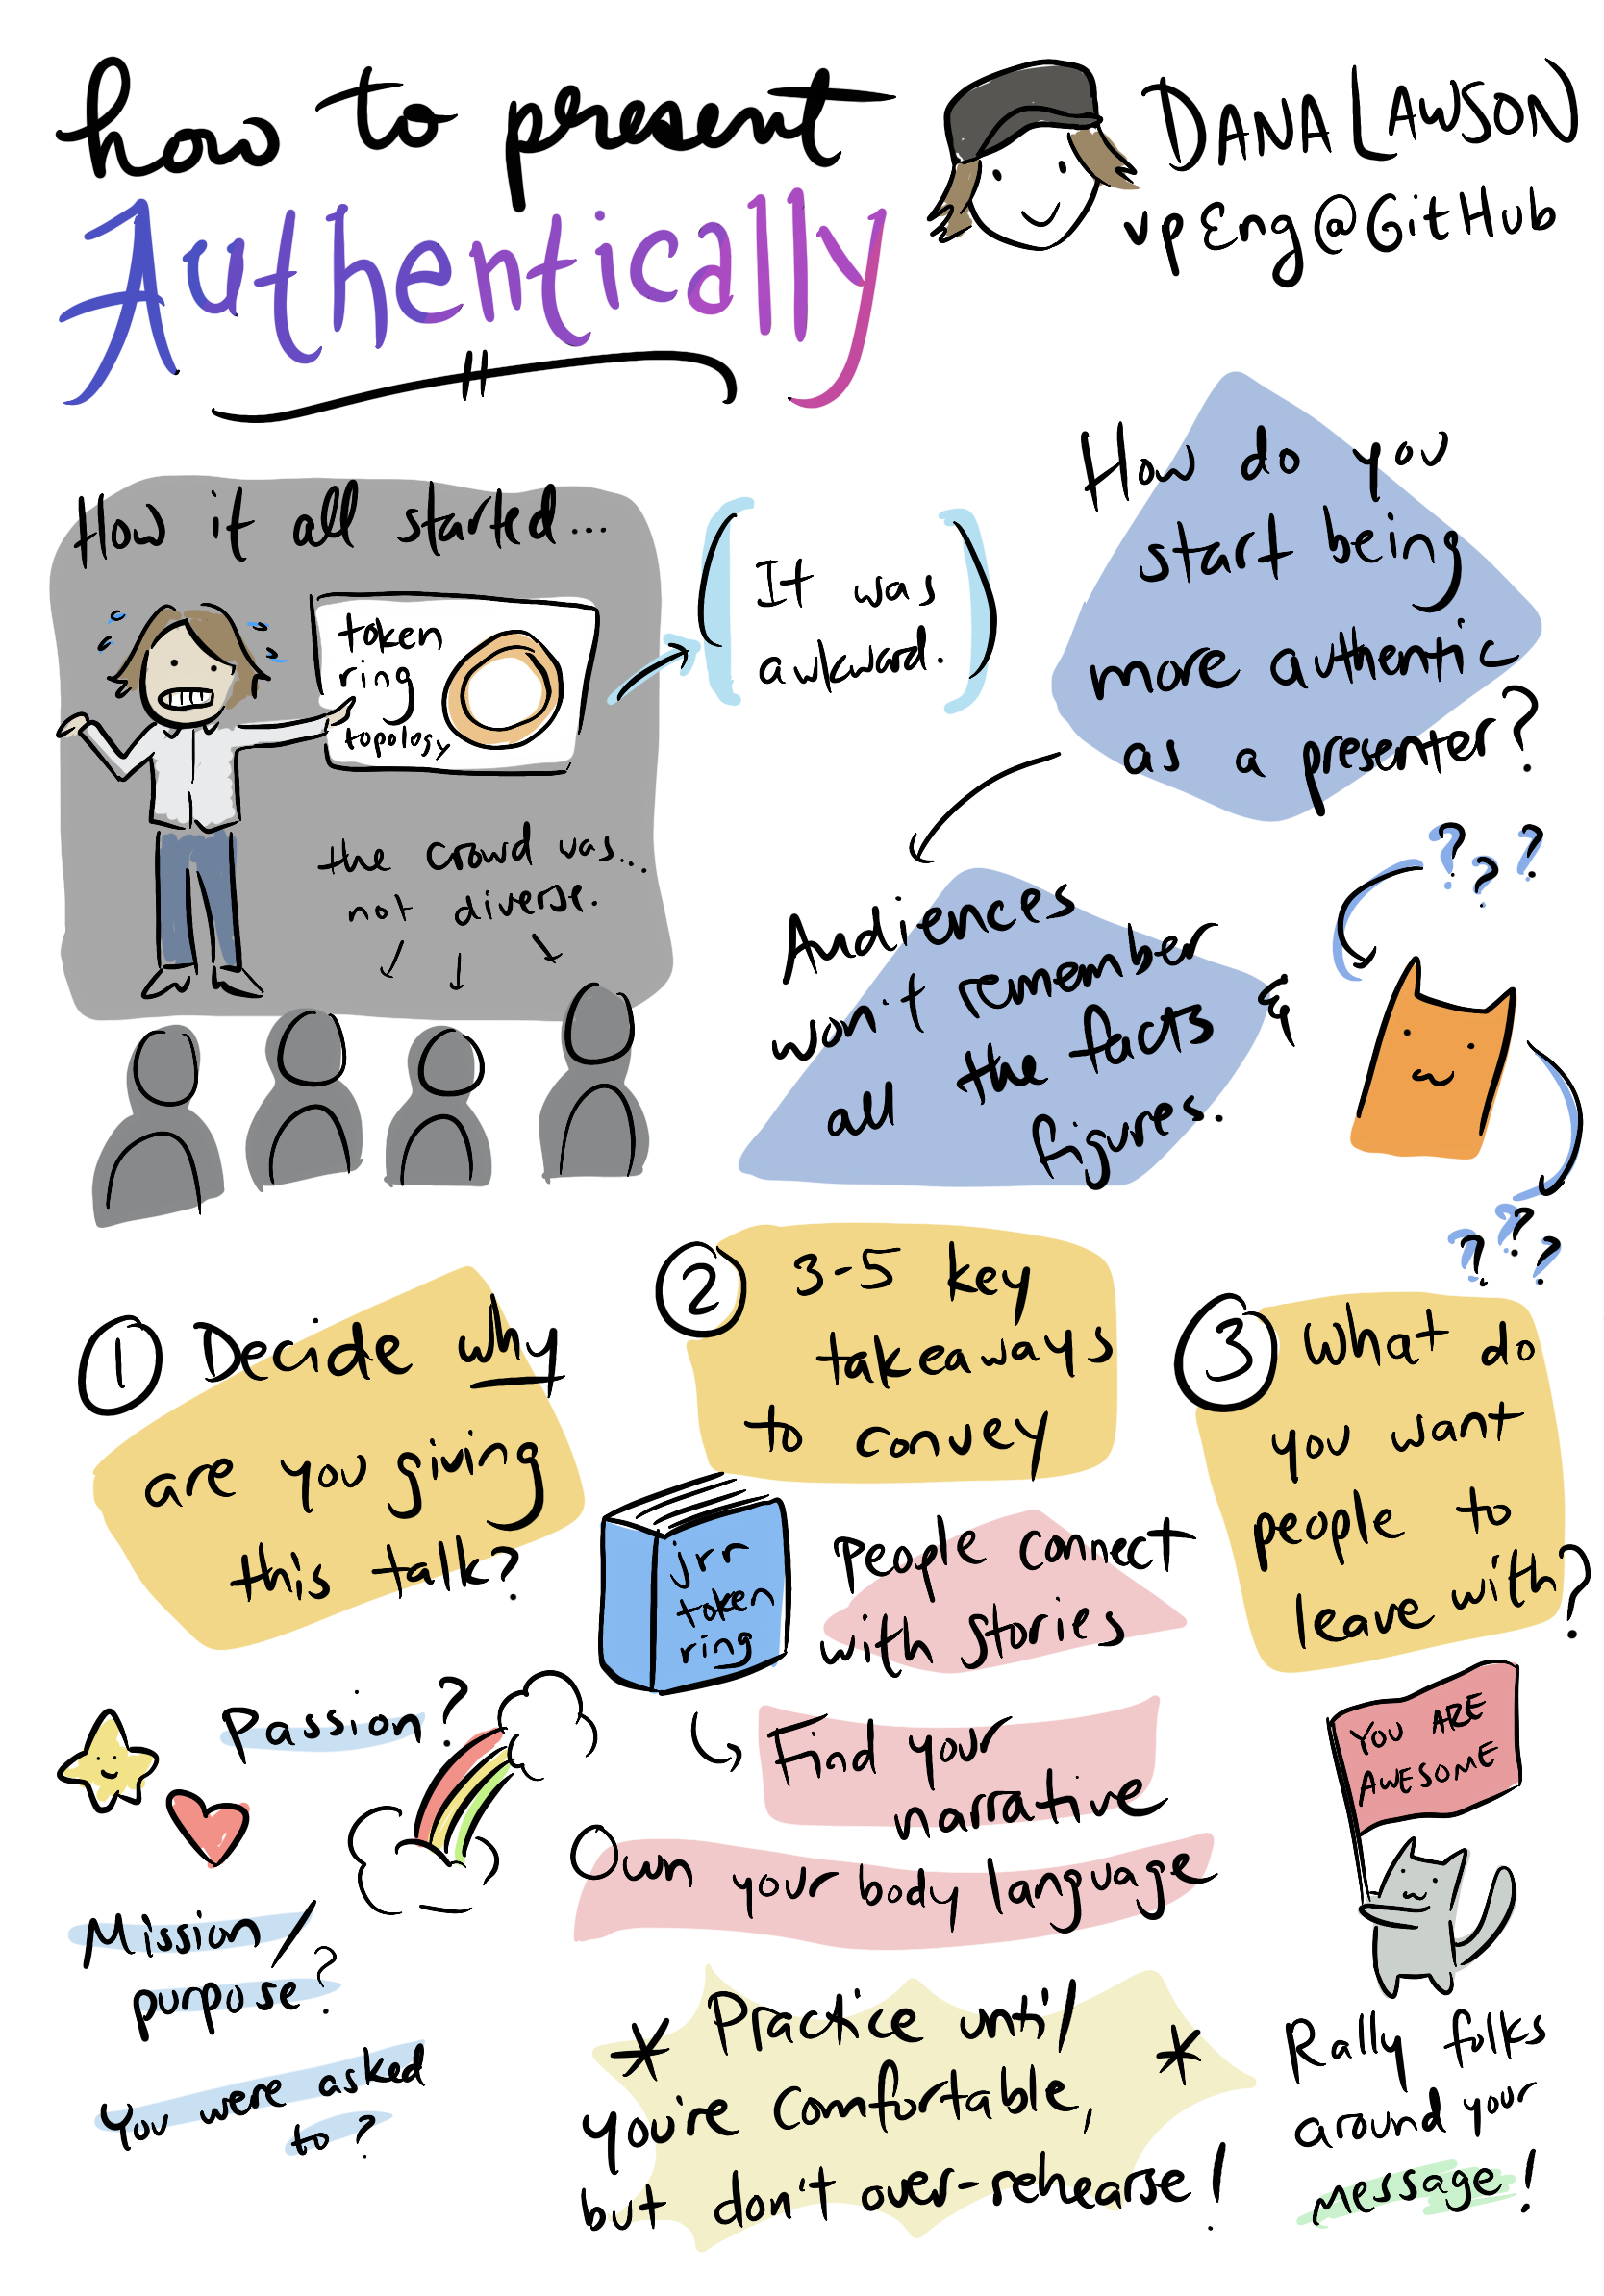 how to present
Authentically
DANA LAWSON
vp Eng @ GitHub
How it all started...
token
ring
topology
the crowd was...
not diverse.
(It was
awkward.)
How do you
start being
more authentic
as a presenter?
Audiences
won't remember
all the facts &
figures.
???
???
1 Decide why
are you giving
this talk?
Passion?
Mission/
purpose?
You were asked
to?
2 3-5 key
takeaways
to convey
jrr
token
ring
People connect
with stories
Find your
narrative
Own your body language
* Practice until *
you're comfortable,
but don't over-rehearse!
3 What do
you want
people to
leave with?
YOU ARE
AWESOME
Rally folks
around your
message!